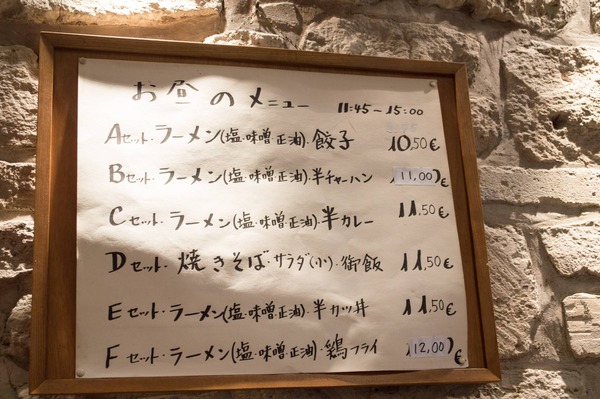 お昼のメニュー 11:45~15:00
Aセット・ラーメン(塩・味噌正油)・餃子 10,50€
Bセット・ラーメン(塩・味噌正油)・半チャーハン 11,00€
Cセット・ラーメン(塩・味噌正油)・半カレー 11,50€
Dセット・焼きそば・サラダ(小)・御飯 11,50€
Eセット・ラーメン(塩・味噌正油)・半カツ丼 11,50€
Fセット・ラーメン(塩・味噌・正油)・鶏フライ 12,00€